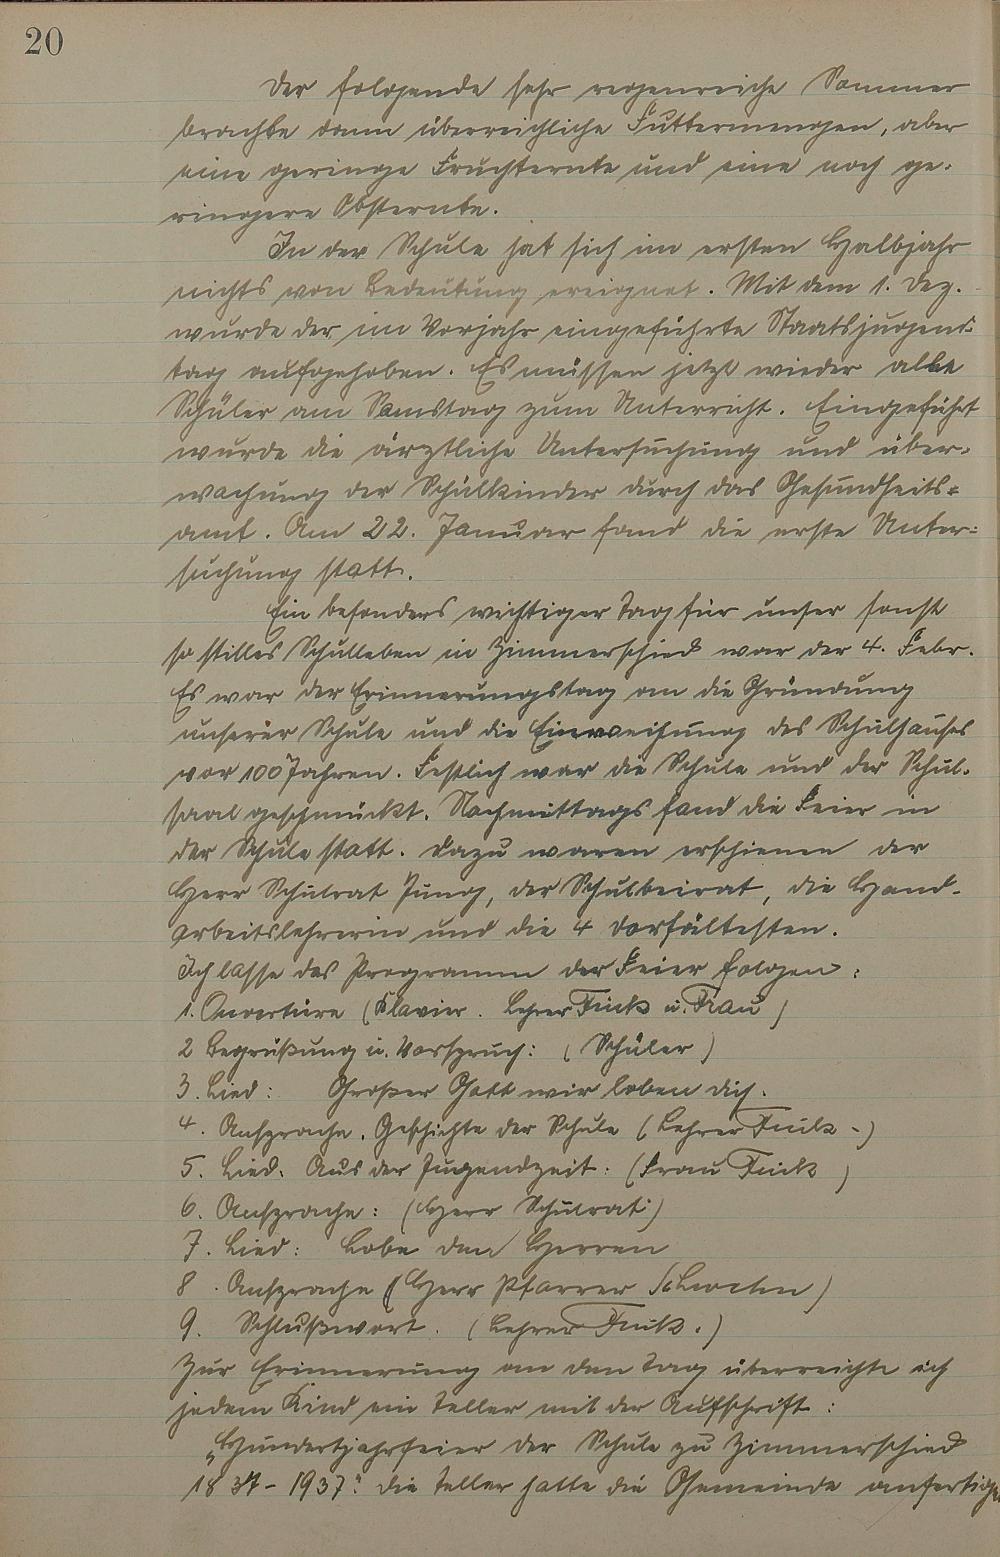 20
Der folgende sehr regenreiche Sommer
brachte dann überreichliche Futtermengen, aber
eine geringe Fruchternte und eine noch ge-
ringere Obsternte.
In der Schule hat sich im ersten Halbjahr
nichts von Bedeutung ereignet. Mit dem 1. Dez.
wurde der im Vorjahr eingeführte Staatsjugend-
tag aufgehoben. Es müssen jetzt wieder alle
Schüler am Samstag zum Unterricht. Eingeführt
wurde die ärztliche Untersuchung und über-
wachung der Schulkinder durch das Gesundheits=
amt. Am 22. Januar fand die erste Unter=
suchung statt.
Ein besonders wichtiger Tag für unser sonst
so stilles Schulleben in Zimmerschied war der 4. Febr.
Es war der Erinnerungstag an die Gründung
unserer Schule und die Einweihung des Schulhauses
vor 100 Jahren. Festlich war die Schule und der Schul-
saal geschmückt. Nachmittags fand die Feier in
der Schule statt. Dazu waren erschienen der
Herr Schulrat Jung, der Schulbeirat, die Hand-
arbeitslehrerin und die 4 Dorfältesten.
Ich lasse das Programm der Feier folgen:
1. Ouvertüre (Klavier. Lehrer Finck u. Frau)
2 Begrüßung u. Vorspruch: (Schüler)
3. Lied: Großer Gott wir loben dich.
4. Ansprache. Geschichte der Schule (Lehrer Finck-)
5. Lied: Aus der Jugendzeit: (Frau Finck)
6. Ansprache: (Herr Schulrat)
7. Lied: Lobe den Herren
8. Ansprache (Herr Pfarrer)
9. Schlußwort. (Lehrer Finck.)
Zur Erinnerung an den Tag überreichte ich
jedem Kind ein Teller mit der Aufschrift:
„Hundertjahrfeier der Schule zu Zimmerschied
1837-1937." Die Teller hatte die Gemeinde anfertigen